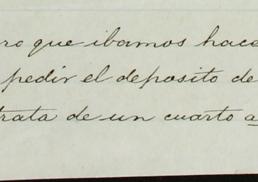 ro que ibamos hace
pedir el deposito de
trata de un cuarto a